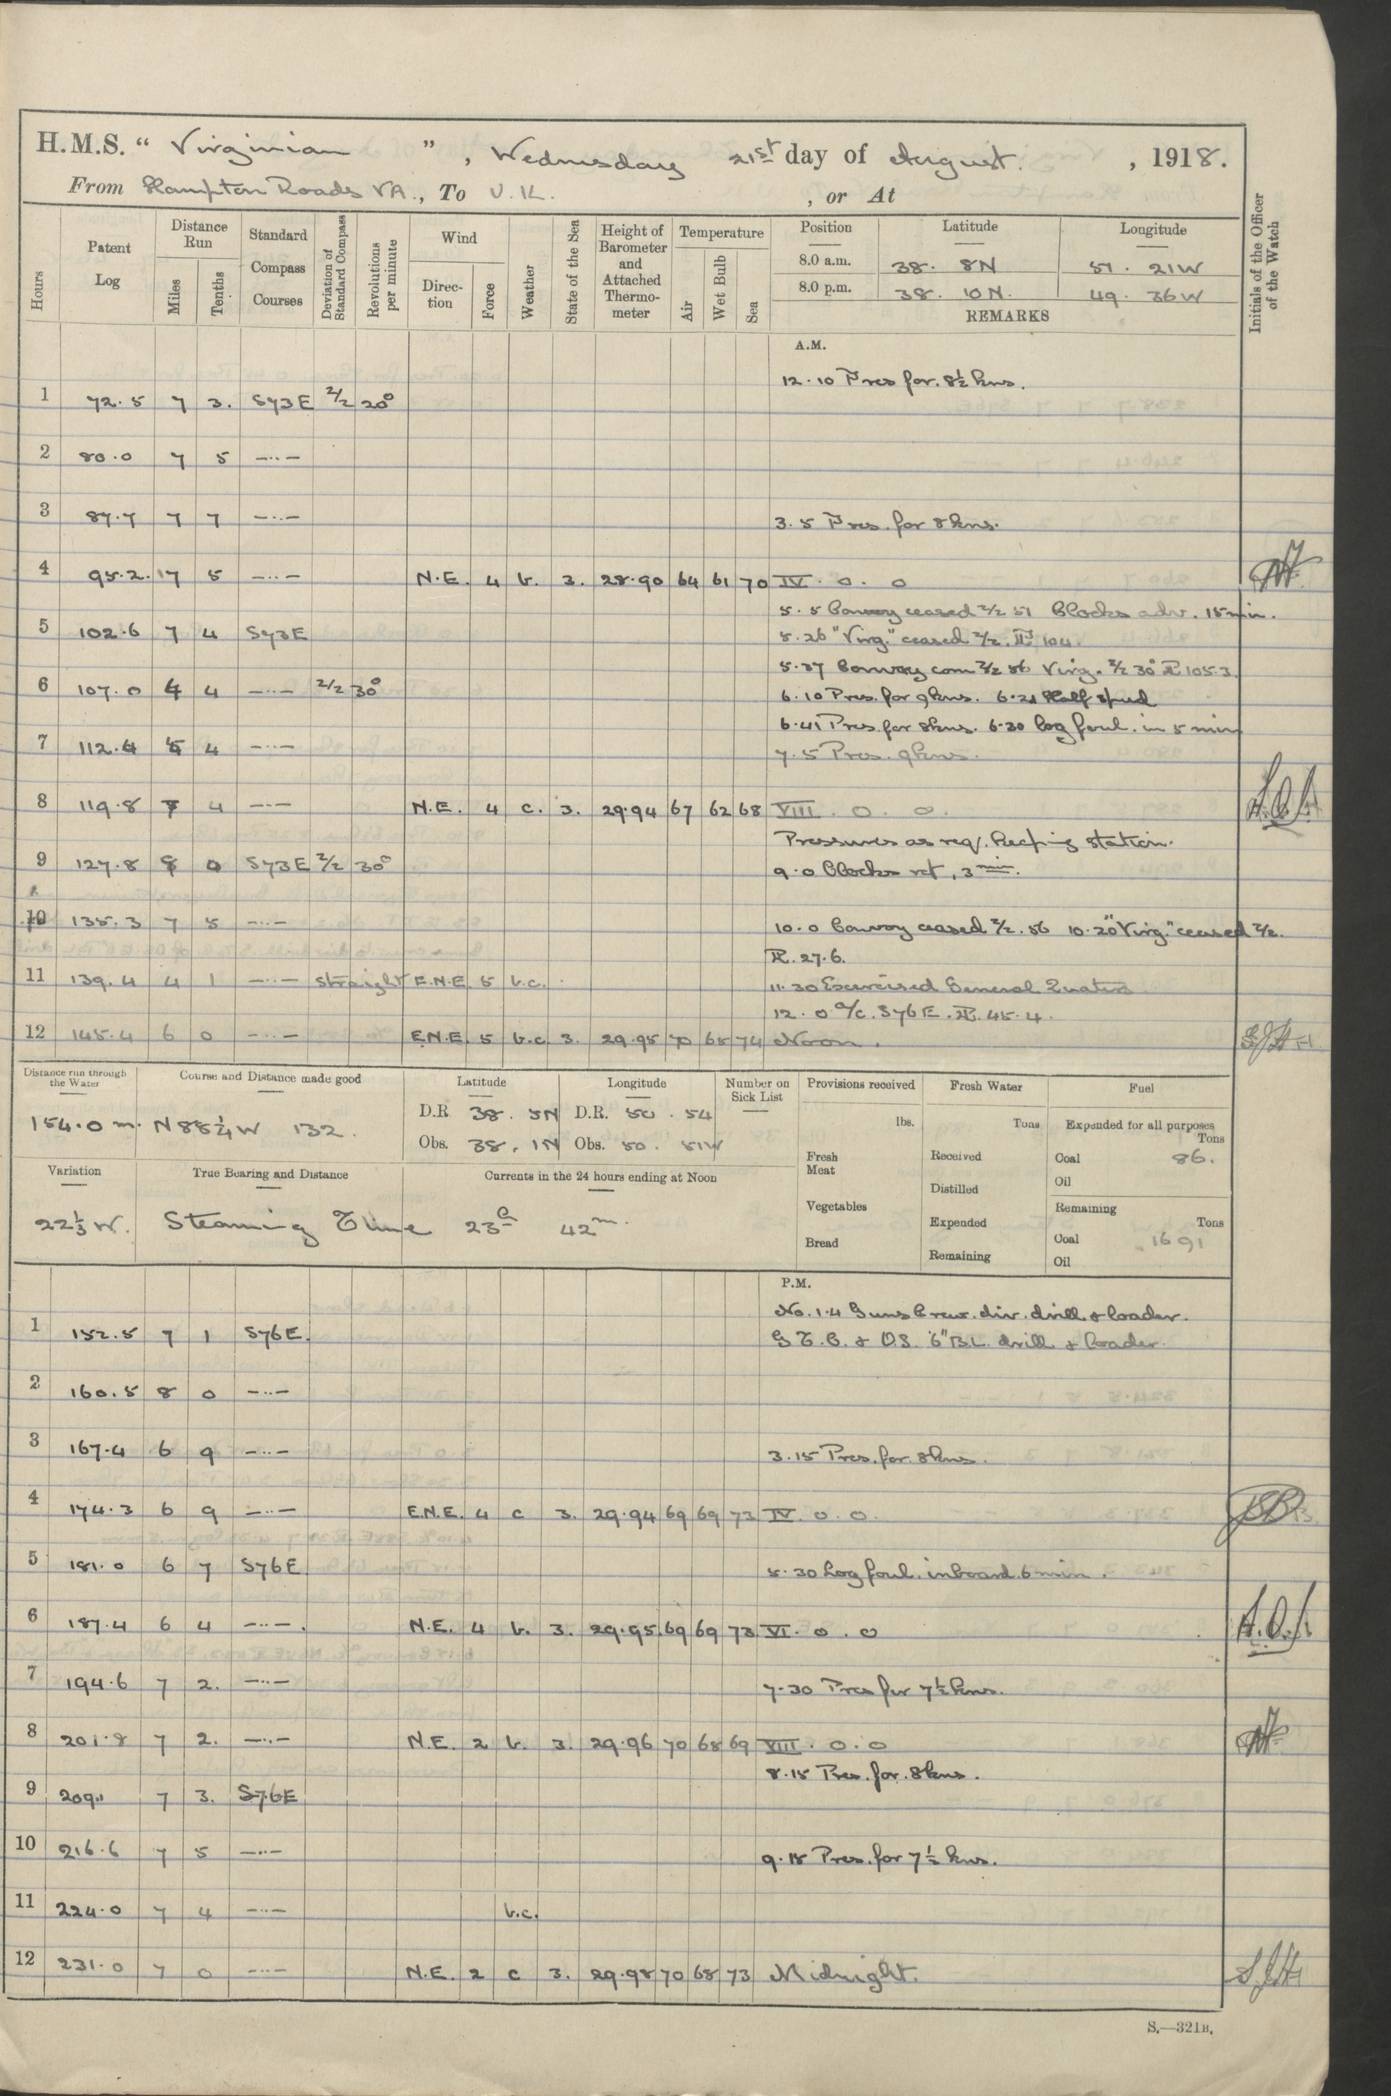 H.M.S. “ Virginian ” , Wednesday 21st day of August. , 1918.
From Hampton Roads VA., To U.K. , or At
Hours
Patent Log
Distance Run
Miles
Tenths
Standard Compass Courses
Deviation of Standard Compass
Revolutions per minute
Wind
Direction
Force
Weather
State of the Sea
Height of Barometer and Attached Thermometer
Temperature
Air
Wet Bulb
Sea
Position Latitude Longitude
8.0 a.m. 38. 8N 51. 21W
8.0 p.m. 38. 10N. 49. 36W
REMARKS
Initials of the Officer of the Watch
A.M.
12.10 Pres for. 8½ kns.
1 72.5 7 3. S73E Z/z 20°
2 80.0 7 5 —··—
3 87.7 7 7 —··— 3.5 Pres. for 8 kns.
4 95.2. 7 5 —··— N.E. 4 b. 3. 29.90 64 61 70 IV. 0. 0
5.5 Convoy ceased Z/z 51 Clocks adv. 15 min.
5 102.6 7 4 S73E 5.26 "Virg." ceased Z/z. P.L. 104.
5.37 Convoy com Z/z 56 Virg. Z/z 30° P.L 105.3.
6 107.0 4 4 —··— Z/z 30° 6.10 Pres. for 9 kns. 6.21 Half speed
6.41 Pres for 8 kns. 6.30 log foul. in 5 min
7 112.4 5 4 —··— 7.5 Pres. 9 kns.
8 119.8 7 4 —··— N.E. 4 c. 3. 29.94 67 62 68 VIII. 0. 0.
Pressures as req. keeping station.
9 127.8 8 0 S73E Z/z 30° 9.0 Clocks ret, 3 min.
10 135.3 7 5 —··— 10.0 Convoy ceased Z/z. 56 10.20 "Virg." ceased Z/z.
P.L. 27.6.
11 139.4 4 1 —··— Straight E.N.E 5 b.c. 11.30 Exercised General Quarters
12.0 a/c. S76E. P.L. 45.4.
12 145.4 6 0 —··— E.N.E. 5 b.c 3. 29.95 70 65 74 Noon.
Distance run through the Water
154.0 m.
Course and Distance made good
N88¼W 132.
Latitude Longitude
D.R 38. 5N D.R. 50. 54
Obs. 38. 1N Obs. 50. 51W
Number on Sick List
Provisions received
lbs.
Fresh Meat
Vegetables
Bread
Fresh Water
Tons
Received
Distilled
Expended
Remaining
Fuel
Expended for all purposes
Tons
Coal 86.
Oil
Remaining
Tons
Coal 1691
Oil
Variation
22⅓ W.
True Bearing and Distance
Currents in the 24 hours ending at Noon
Steaming Time 23h 42m.
P.M.
No. 1.4 Guns Crew. div. drill & loader.
1 152.5 7 1 S76E. G.T.C. & O.S. 6" B.L. drill & loader.
2 160.5 8 0 —··—
3 167.4 6 9 —··— 3.15 Pres. for 8 kns.
4 174.3 6 9 —··— E.N.E. 4 c 3. 29.94 69 69 73 IV. 0. 0.
5 181.0 6 7 S76E 5.30 Log foul. inboard. 6 min.
6 187.4 6 4 —··—. N.E. 4 b. 3. 29.95 69 69 73 VI. 0. 0
7 194.6 7 2. —··— 7.30 Pres for 7½ kns.
8 201.8 7 2. —··— N.E. 2 b. 3. 29.96 70 68 69 VIII. 0. 0
8.15 Pres. for. 8 kns.
9 209.1 7 3. S76E
10 216.6 7 5 —··— 9.15 Pres. for 7½ kns.
11 224.0 7 4 —··— b.c.
12 231.0 7 0 —··— N.E. 2 c 3. 29.98 70 68 73 Midnight.
S.—321B.